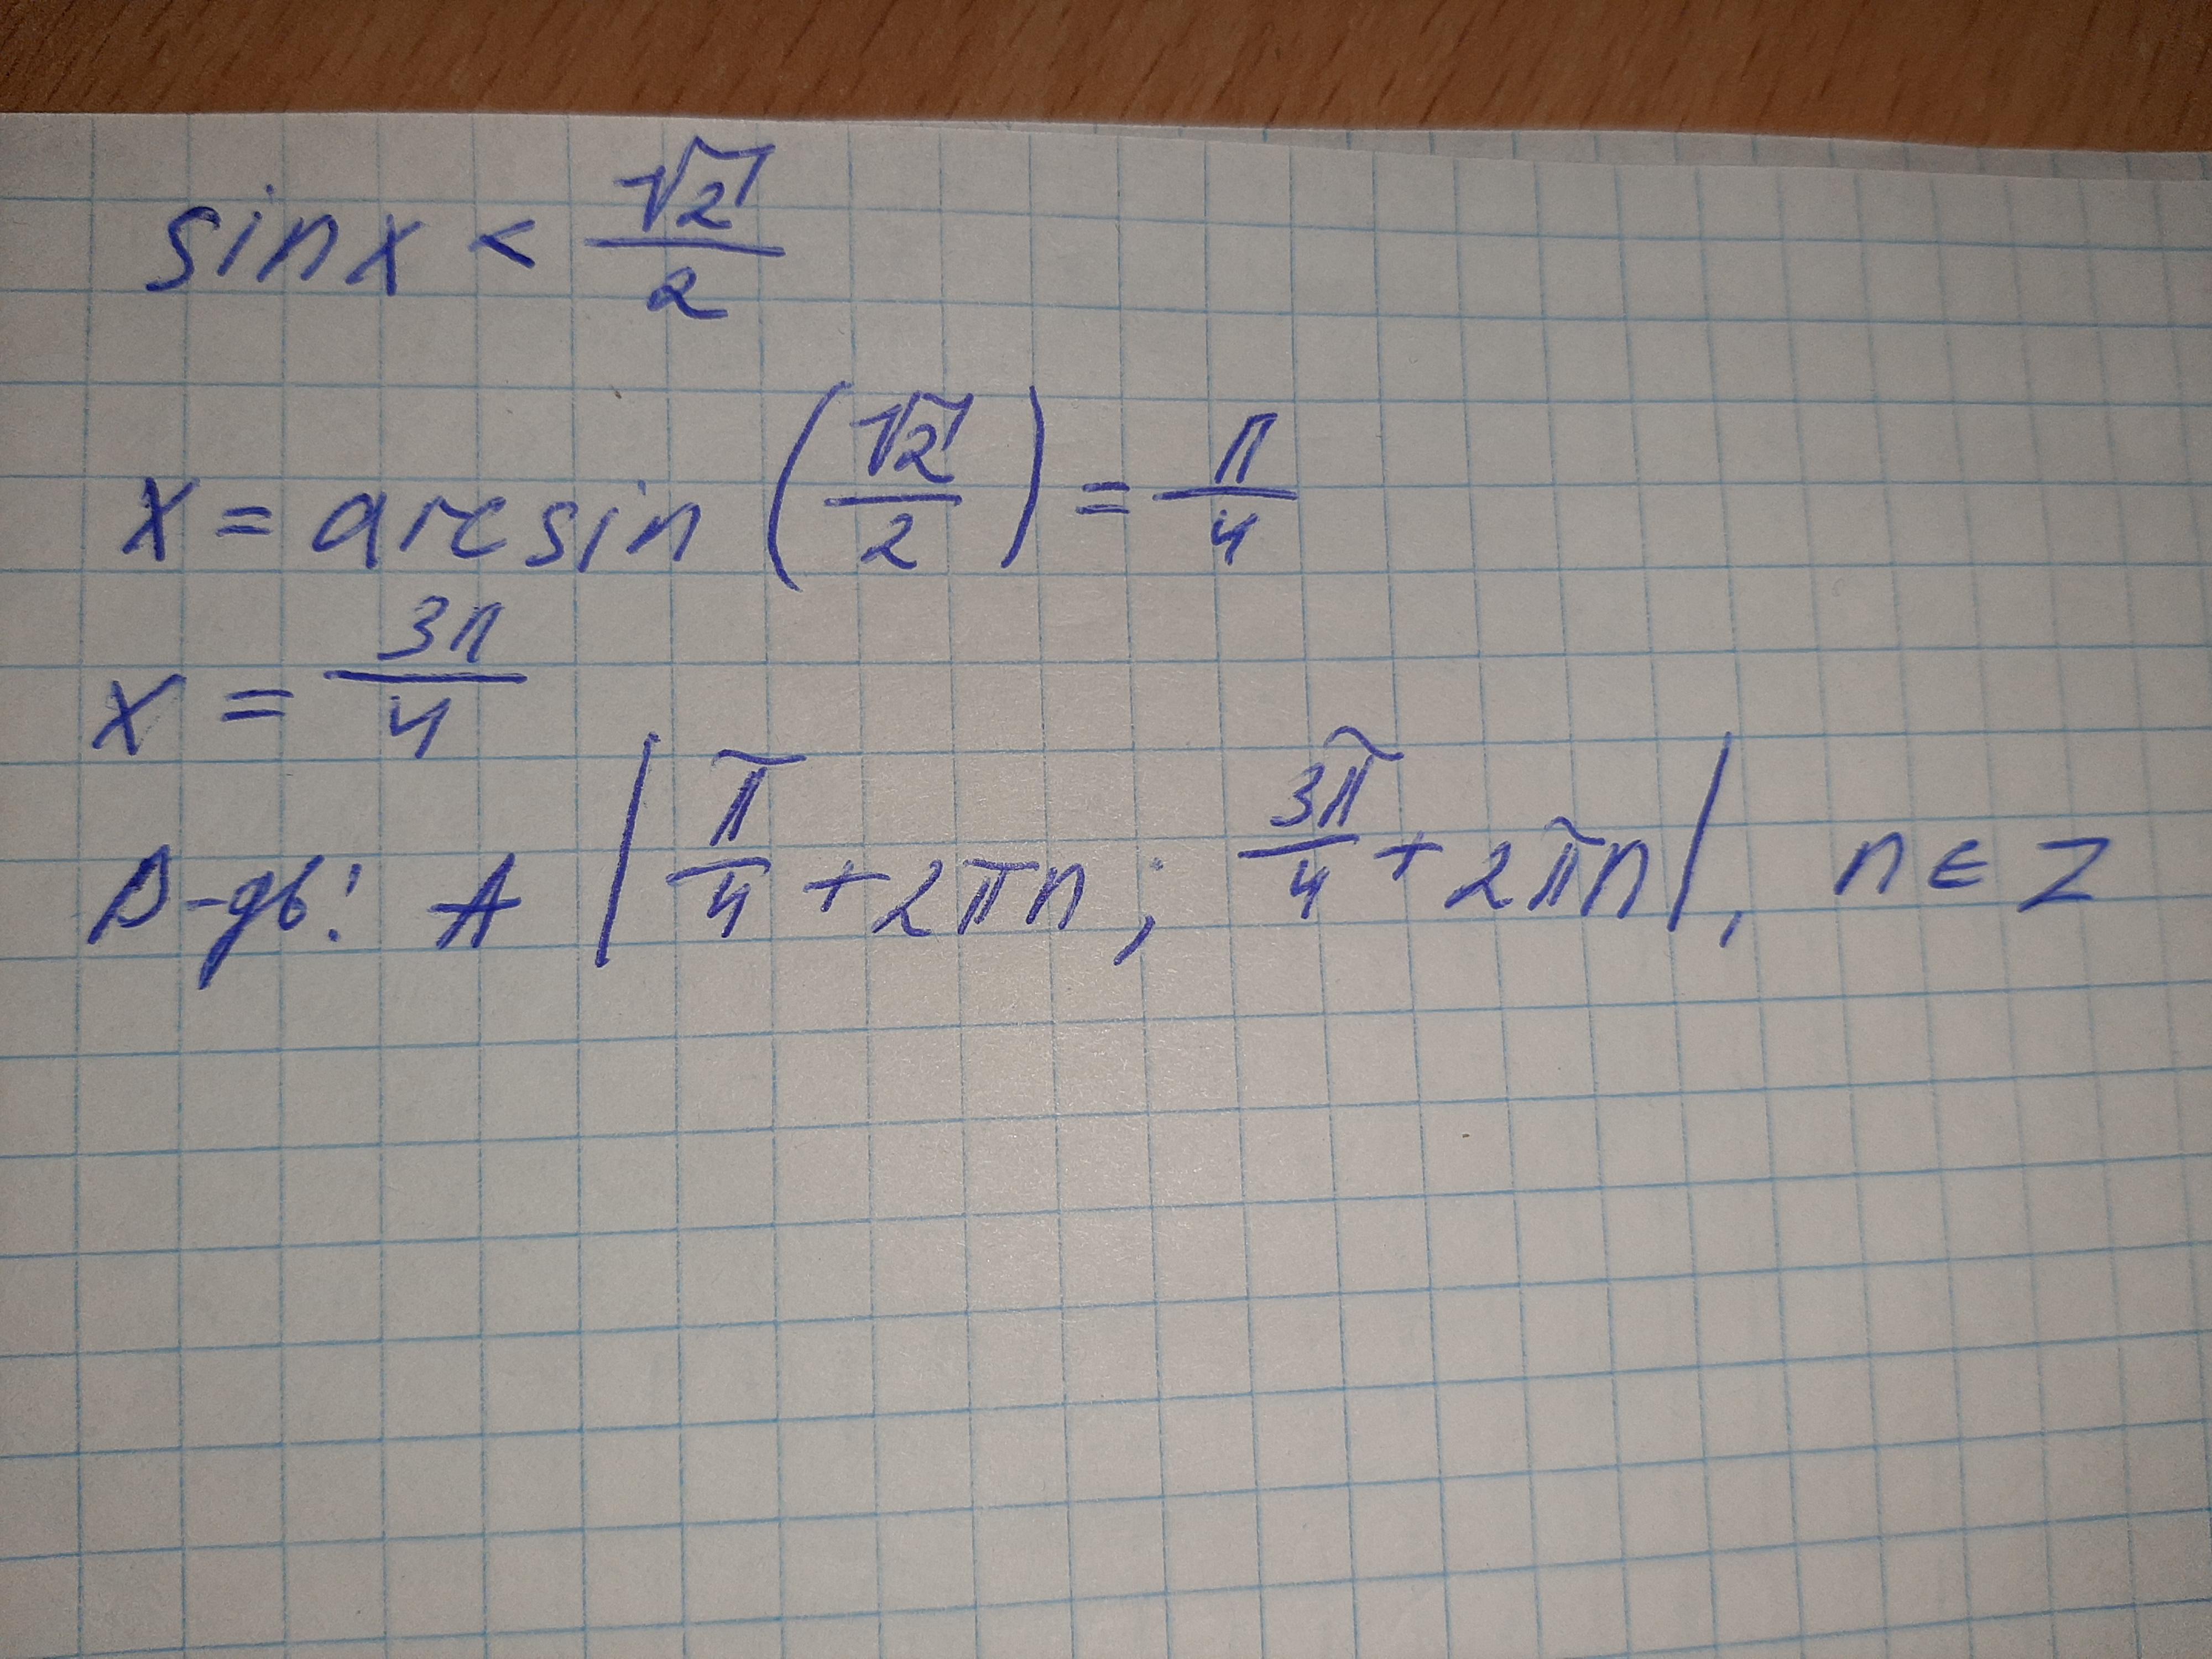 sin x < √2/2
x = arcsin (√2/2) = π/4
x = 3π/4
В-дь: A |π/4 + 2πn; 3π/4 + 2πn|, n ∈ Z